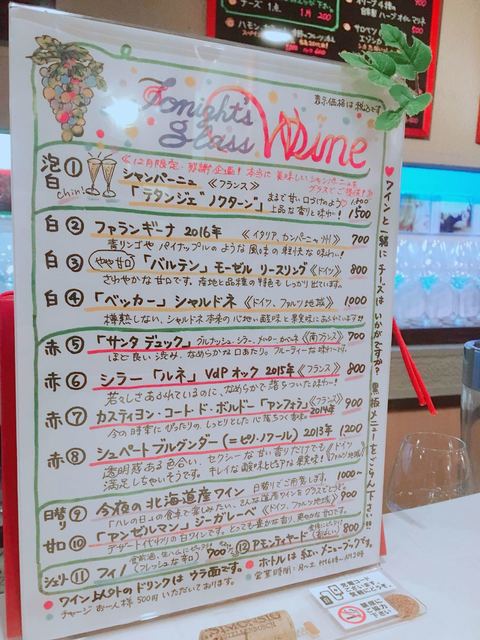 Tonight's
glass Wine
表示価格は税込です
泡白 ① 《12月限定・感謝企画!本当に美味しいシャンパーニュをグラスでご提供!》
chin!
シャンパーニュ 《フランス》
「テタンジェ"ノクターン"」 まるで甘い口づけのよう♡
上品な香りと味わー! 1500
白② ファランギーナ 2016年 《イタリア、カンパーニャ州》 700
青リンゴやパイナップルのような風味の軽快な味わー!!
白③ やや甘口 「バルテン」モーゼル リースリング 《ドイツ》 800
さわやかな甘口です。産地と品種の特色もしっかり出ています。
白④ 「ベッカー」シャルドネ 《ドイツ、ファルツ地域》 1,000
樽熟しない、シャルドネ本来の心地い酸味と果実味にあふれています!!
赤⑤ 「サンタ デュック」 グルナッシュ・シラー、メルロー、カベルネ 《南フランス》 700
ほど良い渋み、なめらかな口あたり。フルーティーな味わーです。
赤⑥ シラー「ルネ」VdP オック 2015年 《フランス》 800
若々しさあふれているのに、なめらかで落ちついた味わー!
赤⑦ カスティヨン・コート・ド・ボルドー「アンフォラ」 《フランス》 2014年 900
今の時季にぴったりの、しっとりとした心落ちつく香味
赤⑧ シュペートブルグンダー(=ピノ・ノワール) 2013年 1200
透明感ある色合い、セクシーな甘い香りだけでも 《ドイツ
満足しちゃいそうです。キレイな酸味とピュアな果実味! ファルツ地域》
日替り⑨ 今夜の北海道産ワイン 日替りでご用意します。 1000~
「ハレの日」の食卓で楽しみたい、そんな国産ワインをグラスでどうぞ。
甘口⑩ 「アンゼルマン」ジーガレーベ 《ドイツ、ファルツ地域》 900
デザート代わりの白ワインです。とっても豊かな香り、爽やかな甘口です。
シェリー⑪ フィノ (フレッシュな辛口) 700
⑫ アモンティヤード 800
● ワイン以外のドリンクは ウラ面です。
チャージ お一人様 500円 いただいております。
● ボトルは 紅いメニューブックです。
営業時間:月~土
♥ワインと一緒にチーズはいかがですか? 黒板メニューをごらん下さい!!
チーズ 1点
1月 200